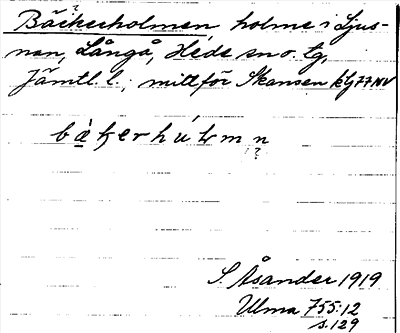 Bäckerholmen, holme i Ljus-
nan, Långå, Hede sn o. tg,
Jämtl. l.; mittför Skansen
bækerhúłmn
S. Åsander 1919
Ulma 755:12
s. 129